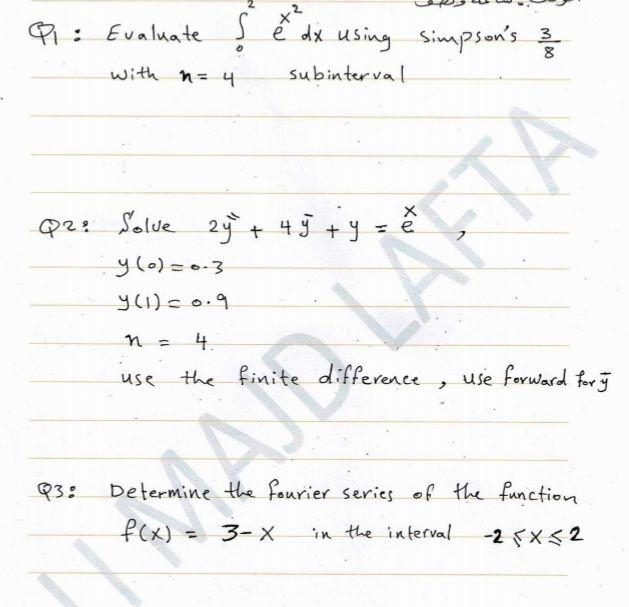 Q1 : Evaluate ∫₀² e^x² dx using Simpson's 3/8
with n = 4 subinterval
Q2: Solve 2y̿ + 4y̅ + y = e^x ,
y(0) = 0.3
y(1) = 0.9
n = 4.
use the finite difference , use forward for y̅
Q3: Determine the fourier series of the function
f(x) = 3-x in the interval -2 ≤ x ≤ 2
MAJD LAFTA